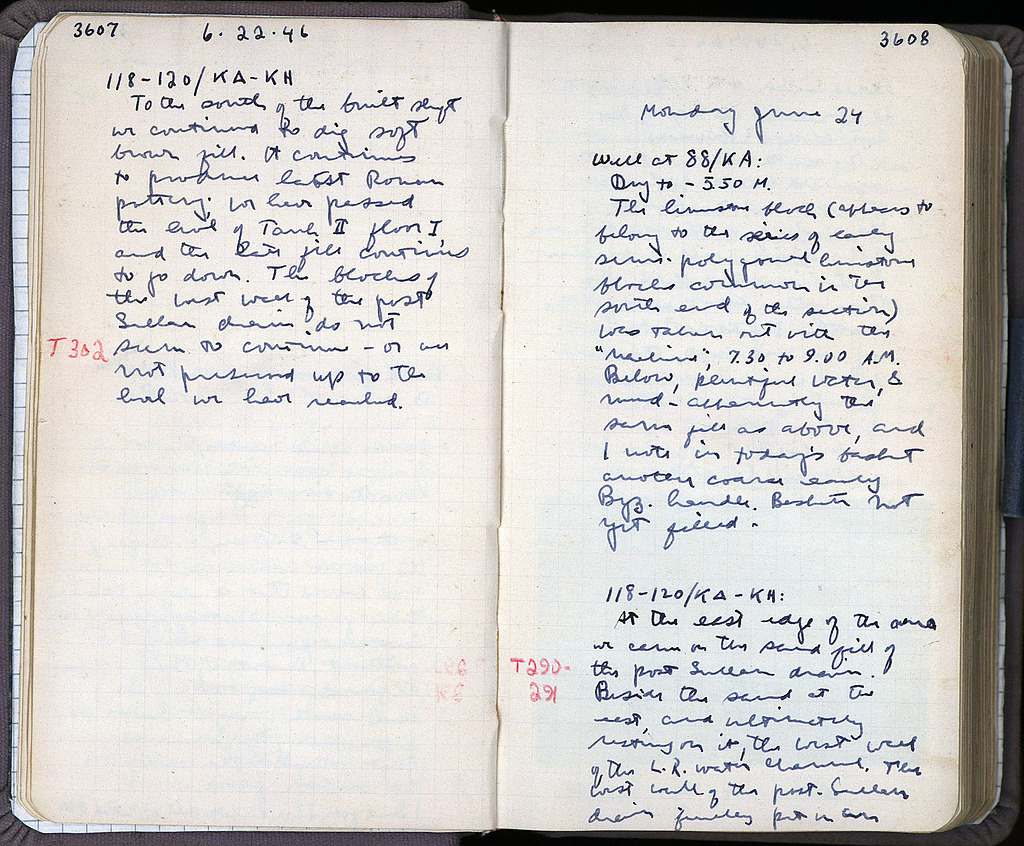 3607
6.22.46
118-120/KA-KH
To the south of the built shaft
we continued to dig soft
brown fill. It continues
to produce latest Roman
pottery. We have passed
the level of Tank II floor I,
and the late fill continues
to go down. The blocks of
the west wall of the post
Sullan drain do not
T302
seem to continue – or are
not preserved up to the
level we have reached.
3608
Monday June 24
Well at 88/KA:
Dug to – 5.50 M.
The limestone block (appears to
belong to the series of early
semi-polygonal limestone
blocks common in the
south end of the section)
was taken out with the
7.30 to 9.00 A.M.
Below, plentiful water, &
mud – apparently the
same fill as above, and
I note in today's basket
another coarse early
Byz. handle. Basket not
yet filled.
118-120/KA-KH:
At the east edge of the area
we came on the sand fill of
T290-
the post Sullan drain.
291
Beside the sand at the
east, and ultimately
resting on it, the west wall
of the L.R. water channel. The
west wall of the post-Sullan
drain finally put in an